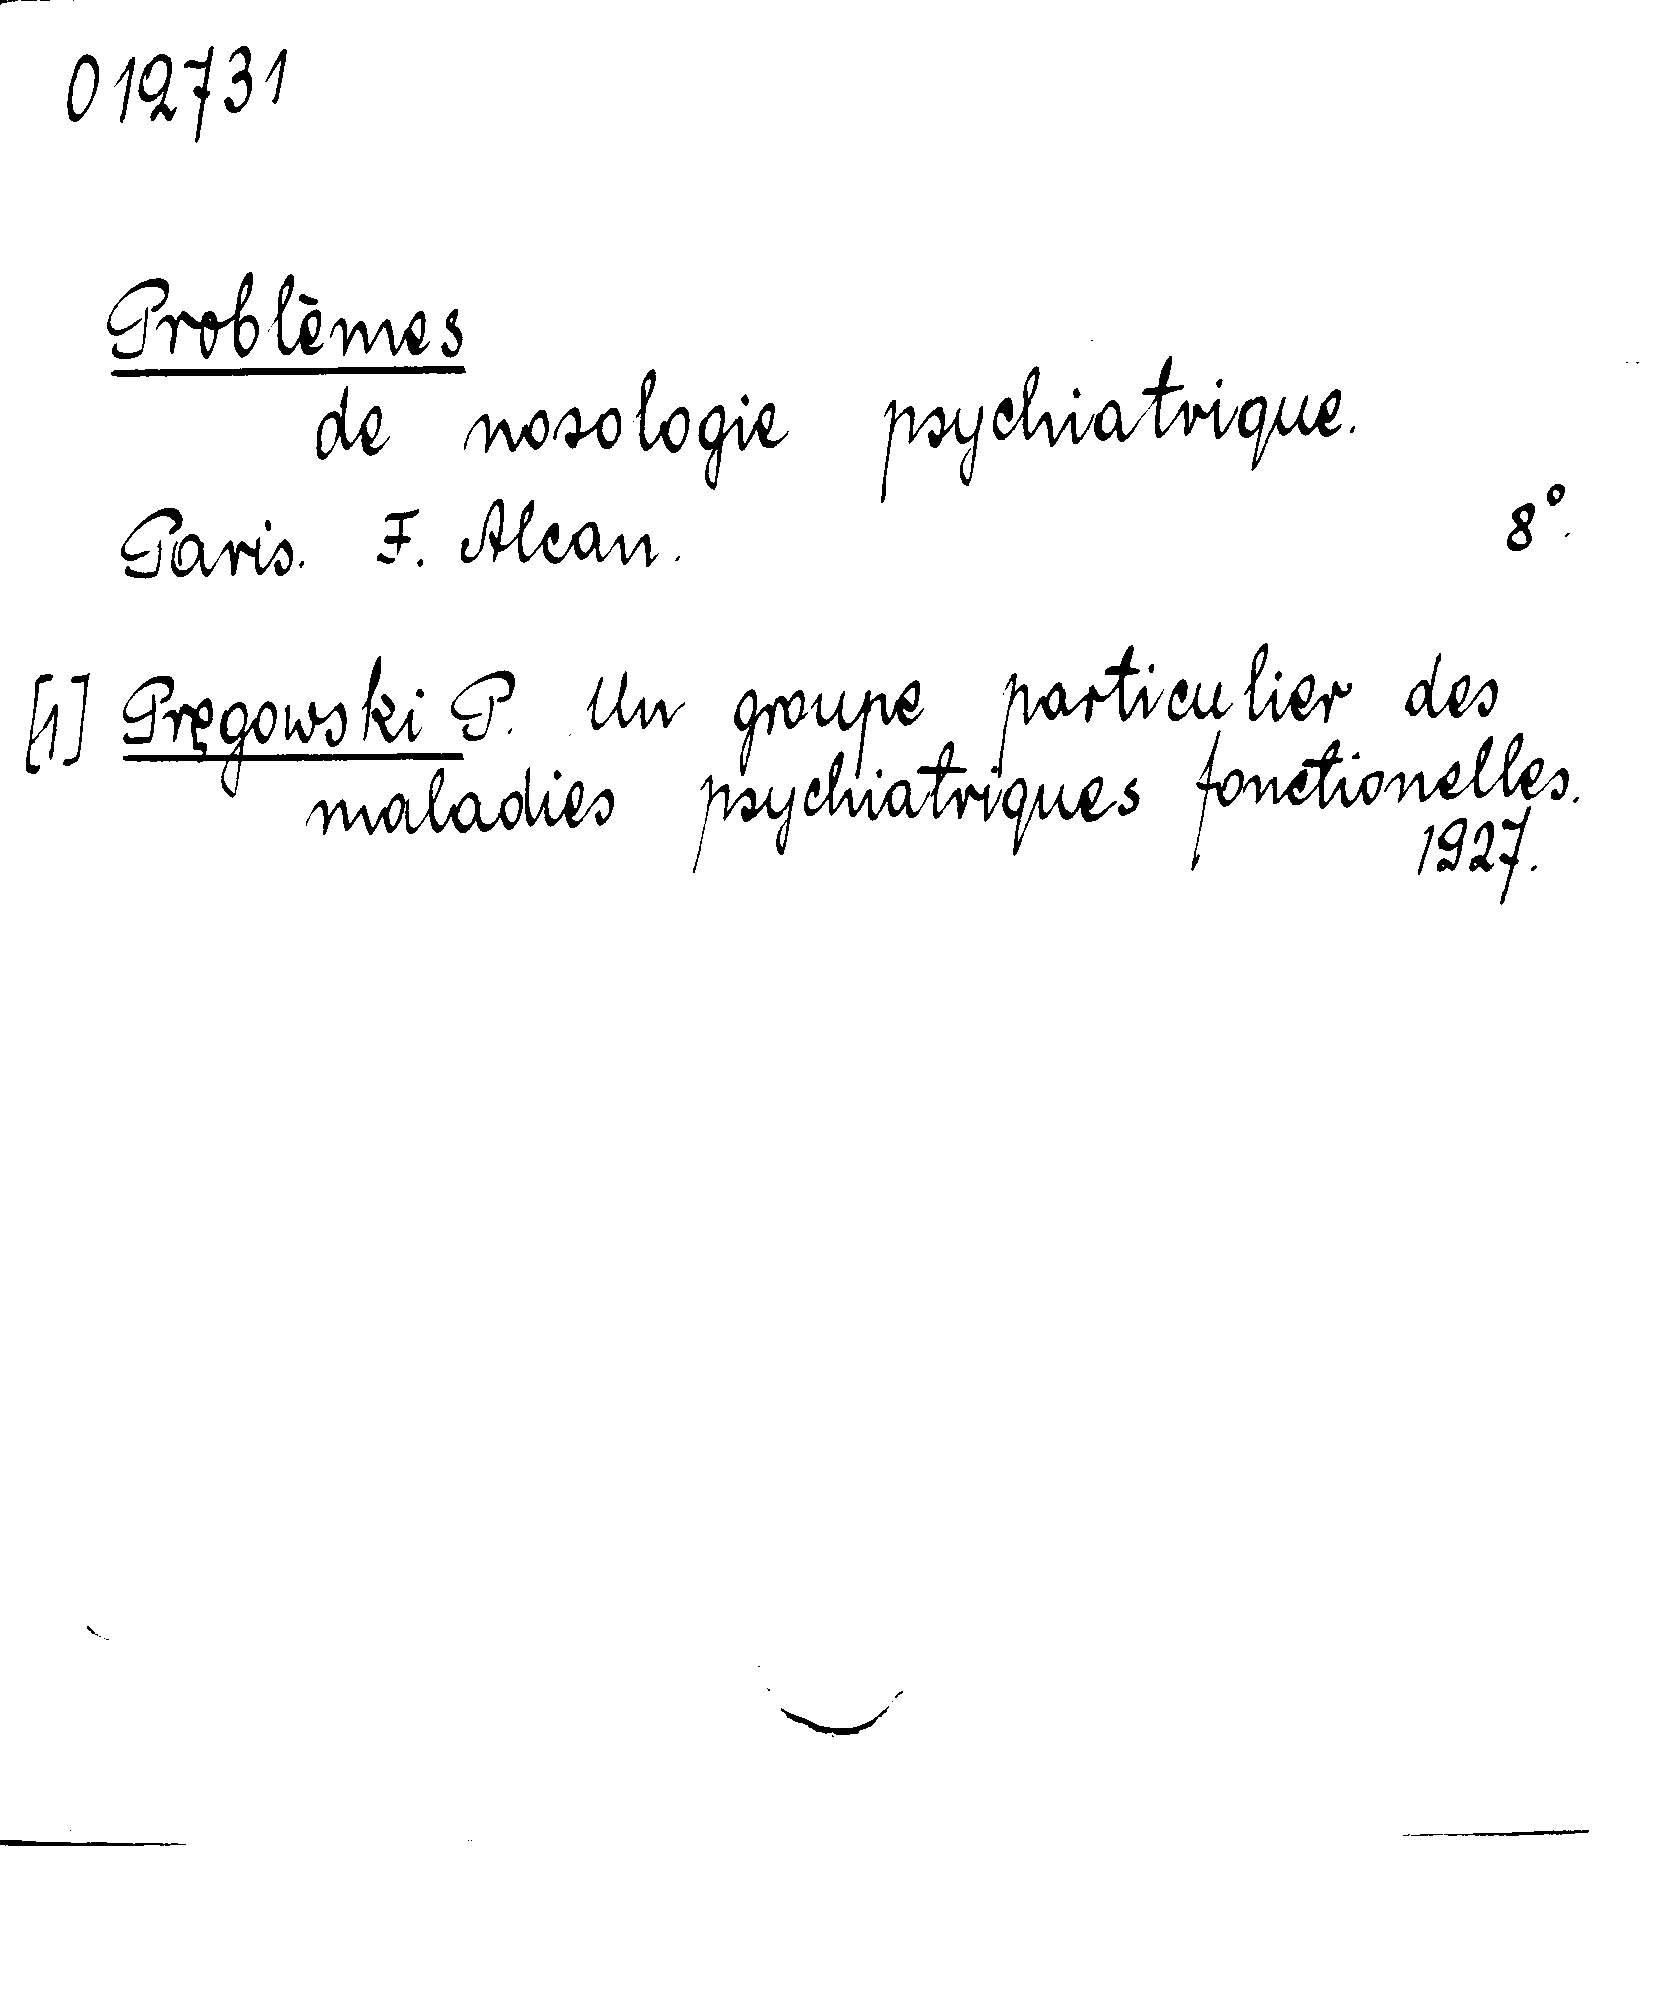 012731
Problèmes
de nosologie psychiatrique.
Paris. F. Alcan. 8°.
[1] Pręgowski P. Un groupe particulier des
maladies psychiatriques fonctionelles.
1927.